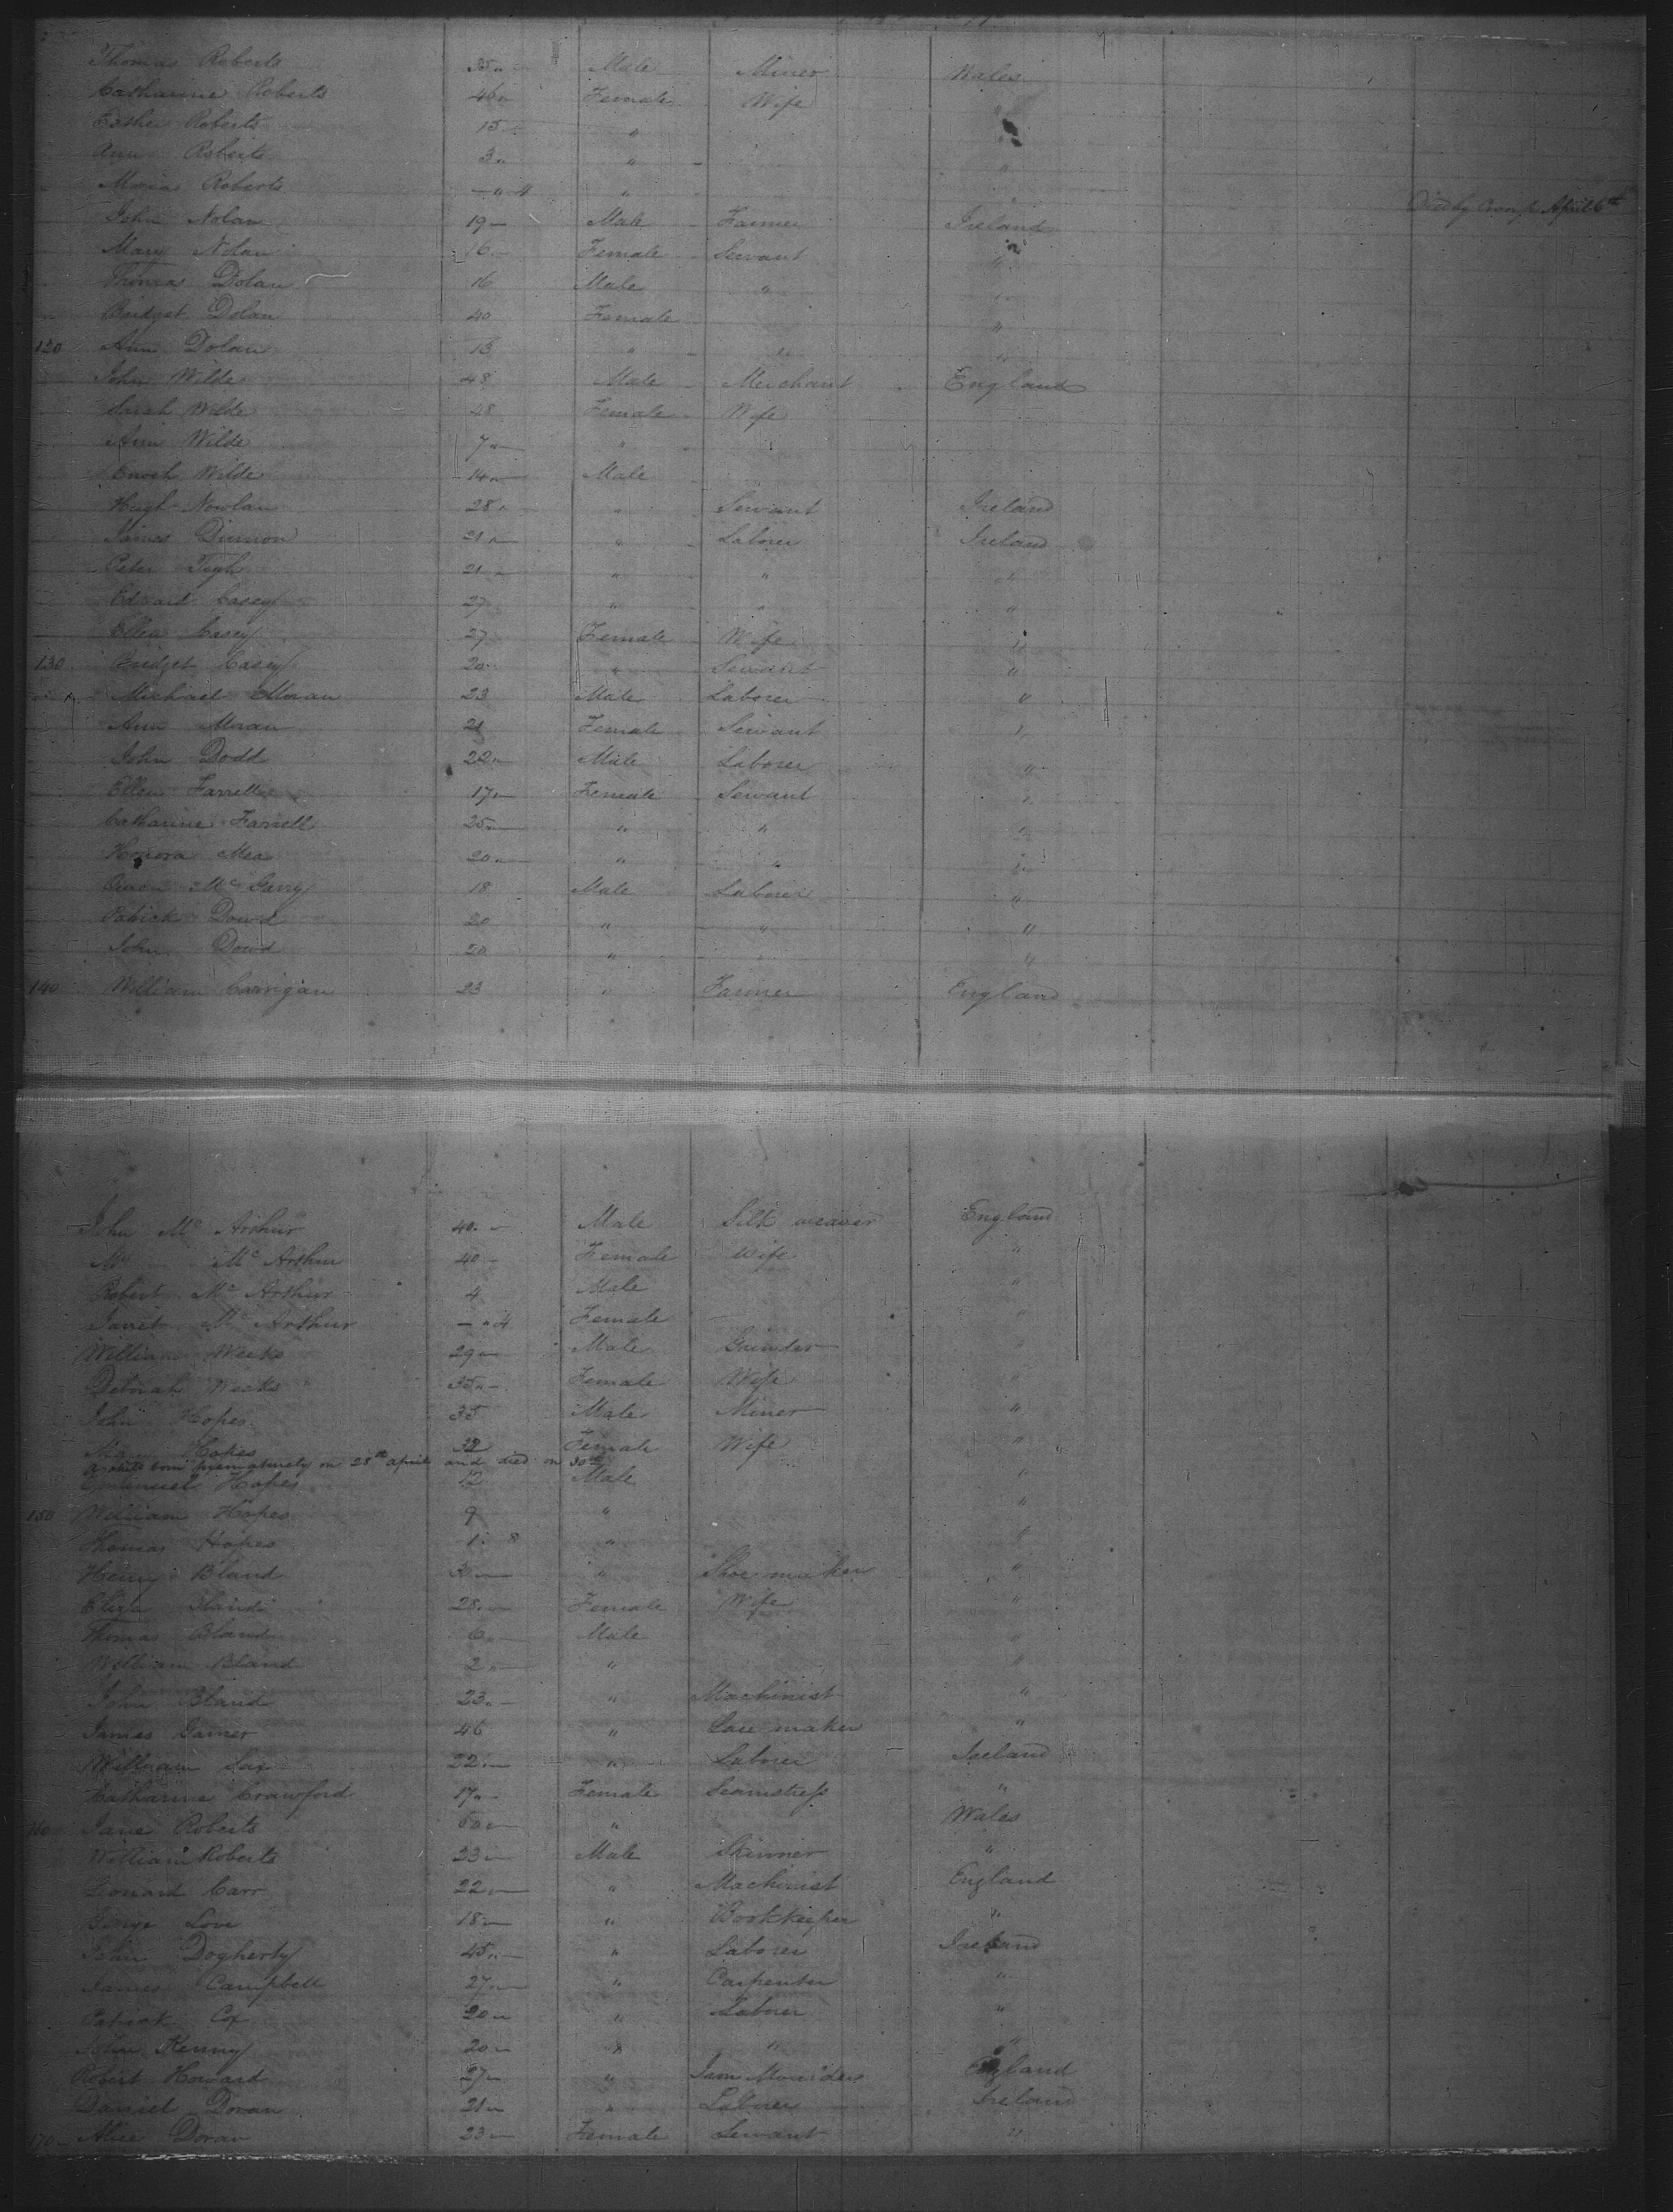 Thomas Roberts 35 " - Male Miner Wales
Catharine Roberts 46 " Female Wife
Esther Roberts 15 - "
Ann Roberts 3 " " "
Maria Roberts - " 4 " Died by Croup April 6th
John Nolan 19 - Male Farmer Ireland
Mary Nolan 16 - Female Servant "
Thomas Dolan 16 Male " "
Bridget Dolan 40 Female "
120 Ann Dolan 13 " " "
John Wilde 48 Male Merchant England
Sarah Wilde 48 Female Wife
Ann Wilde 7 " - "
Enoch Wilde 14 " - Male
Hugh Nowlan 28 " " Servant Ireland
James Dinnon 21 " - " Laborer Ireland
Peter Tigh 21 " " " "
Edward Casey 27 " " "
Ellen Casey 27 Female Wife "
130 Bridget Casey 20 " " Servant "
Michael Moran 23 Male Laborer "
Ann Moran 21 Female Servant "
John Dodd 22 " - Male Laborer "
Ellen Farrell 17 " - Female Servant "
Catharine Farrell 25 " - " " "
Honora Mea 20 " - " " "
Mc Garry 18 Male Laborer "
Patrick Dowd 20 " " "
John Dowd 20 " " "
140 William Carrigan 23 " Farmer England
John Mc Arthur 40 " - Male Silk weaver England
Mc Arthur 40 - Female Wife "
Robert Mc Arthur 4 Male "
Janet Mc Arthur - " 4 Female "
William Weeks 29 " - Male Grinder "
Deborah Weeks 35 " - Female Wife "
John Hopes 35 Male Miner "
Mary Hopes 32 Female Wife "
a child born prematurely on 28th april and died on 30th
Hopes 12 Male "
150 William Hopes 9 " "
Thomas Hopes 1 " 8 " "
Henry Bland 30 " - " Shoe maker "
Eliza Bland 28 " - Female Wife "
Thomas Bland 6 " - Male "
William Bland 2 " - " "
John Bland 23 " - " Machinist "
James Garner 46 " Lace maker "
William 22 " - " Laborer Ireland
Catharine Crawford 17 " - Female Seamstress "
160 Jane Roberts 60 " - " Wales
William Roberts 23 " - Male Skinner "
Leonard Carr 22 " - " Machinist England
George Love 18 " - " Bookkeeper "
John Dogherty 45 " - " Laborer Ireland
James Campbell 27 " - " Carpenter "
Patrick Cox 20 " - " Laborer "
John Kenny 20 " - " " "
Robert Howard 27 " - " England
Daniel Doran 21 " - " Laborer Ireland
170 Alice Doran 23 " - Female Servant "